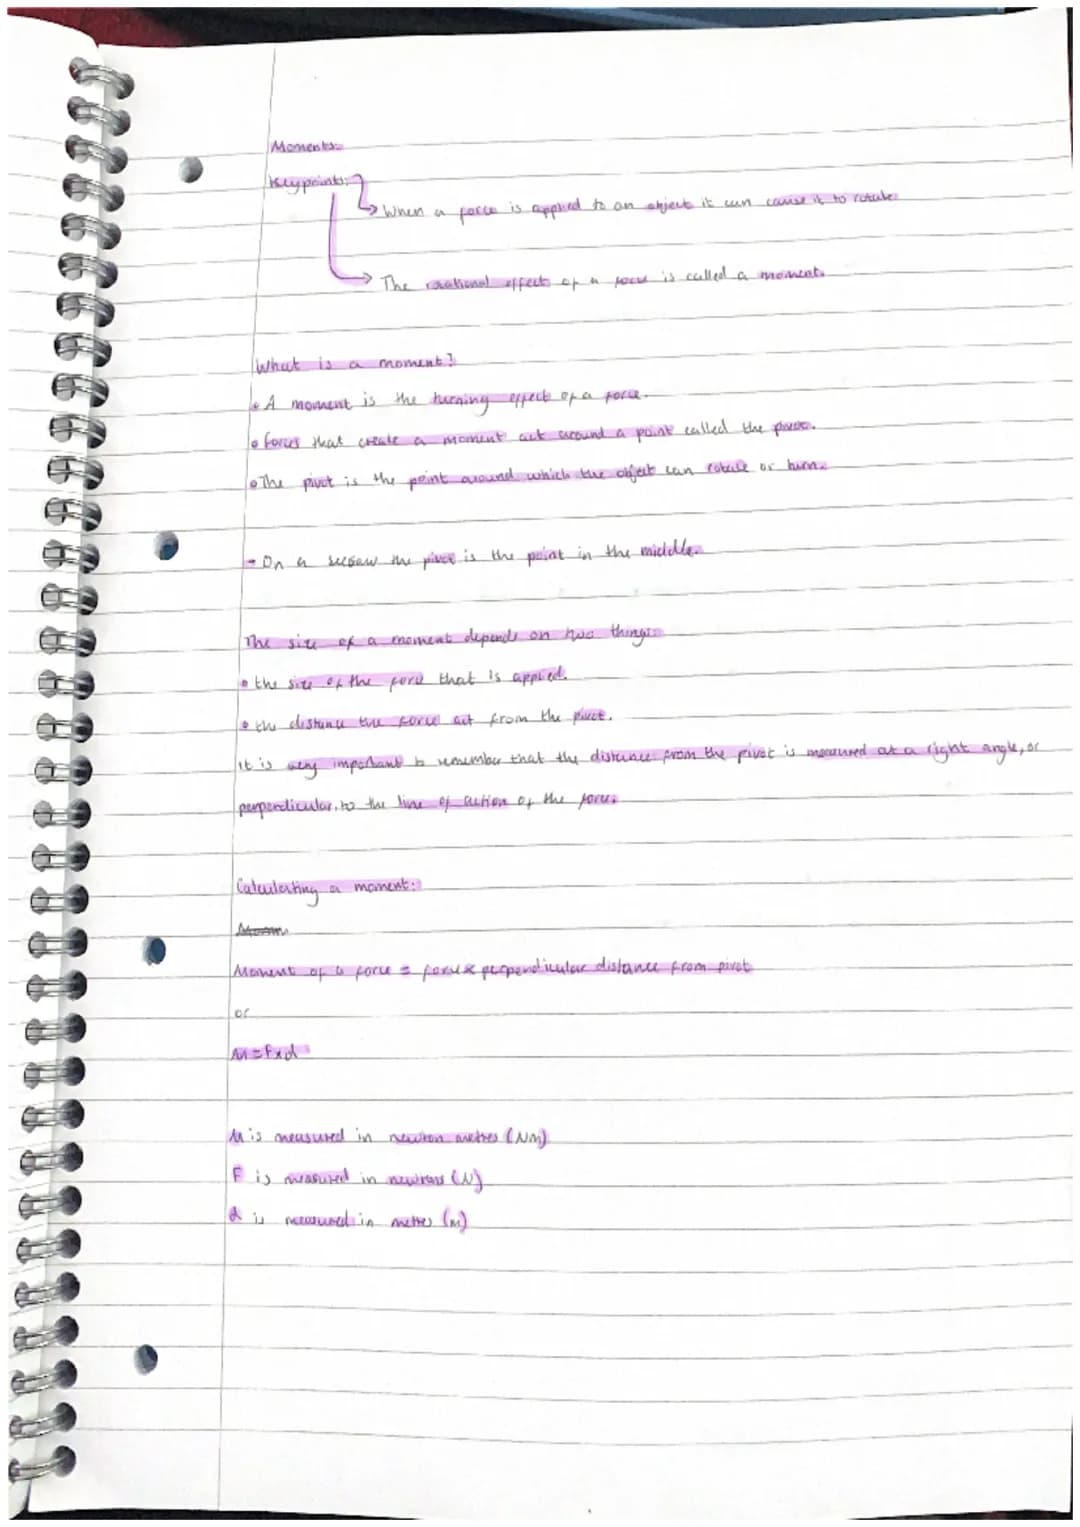 Moments:
Keypoints:
When a force is applied to an object it can cause it to rotate.
The rotational effect of a force is called a moment.
What is a moment?
• A moment is the turning effect of a force.
• forces that create a moment act around a point called the pivot.
• The pivot is the point around which the object can rotate or turn.
- On a seesaw the pivot is the point in the middle.
The size of a moment depends on two things:
• the size of the force that is applied.
• the distance the force act from the pivot.
it is very important to remember that the distance from the pivot is measured at a right angle, or
perpendicular, to the line of action of the force.
Calculating a moment:
Moment of a force = force x perpendicular distance from pivot
or
M = f x d
M is measured in newton metres (Nm)
F is measured in newtons (N)
d is measured in metres (m)